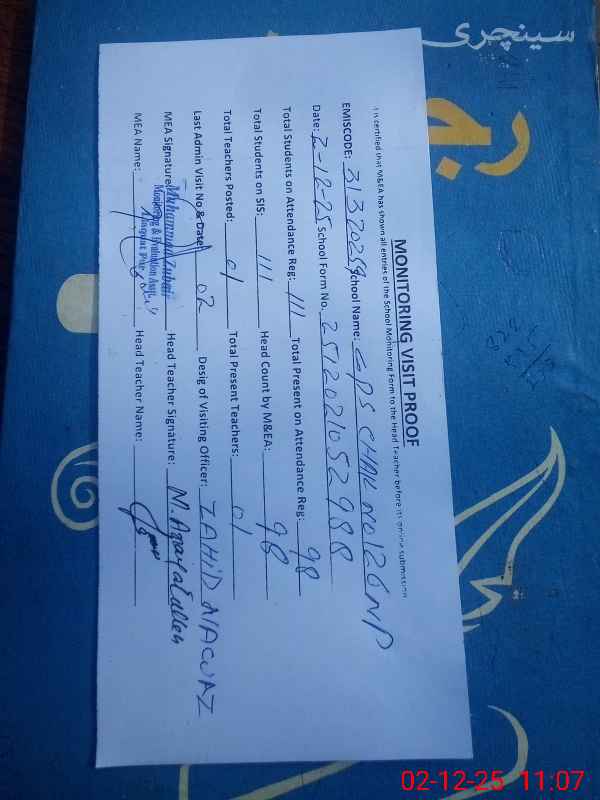 MONITORING VISIT PROOF
It is certified that M&EA has shown all entries of the School Monitoring Form to the Head Teacher before its online submission
EMISCODE: 31320259 School Name: GPS CHAK NO 126 NP
Date: 2-12-25 School Form No. 2512021052988
Total Students on Attendance Reg: 111 Total Present on Attendance Reg: 98
Total Students on SIS: 111 Head Count by M&EA: 98
Total Teachers Posted: 01 Total Present Teachers: 01
Last Admin Visit No & Date: 02 Desig of Visiting Officer: ZAHID NAWAZ
MEA Signature: Head Teacher Signature:
Muhammad Zubair
Monitoring & Evaluation Asstt
MEA Name: Head Teacher Name:
سینچری
رجـ
02-12-25 11:07